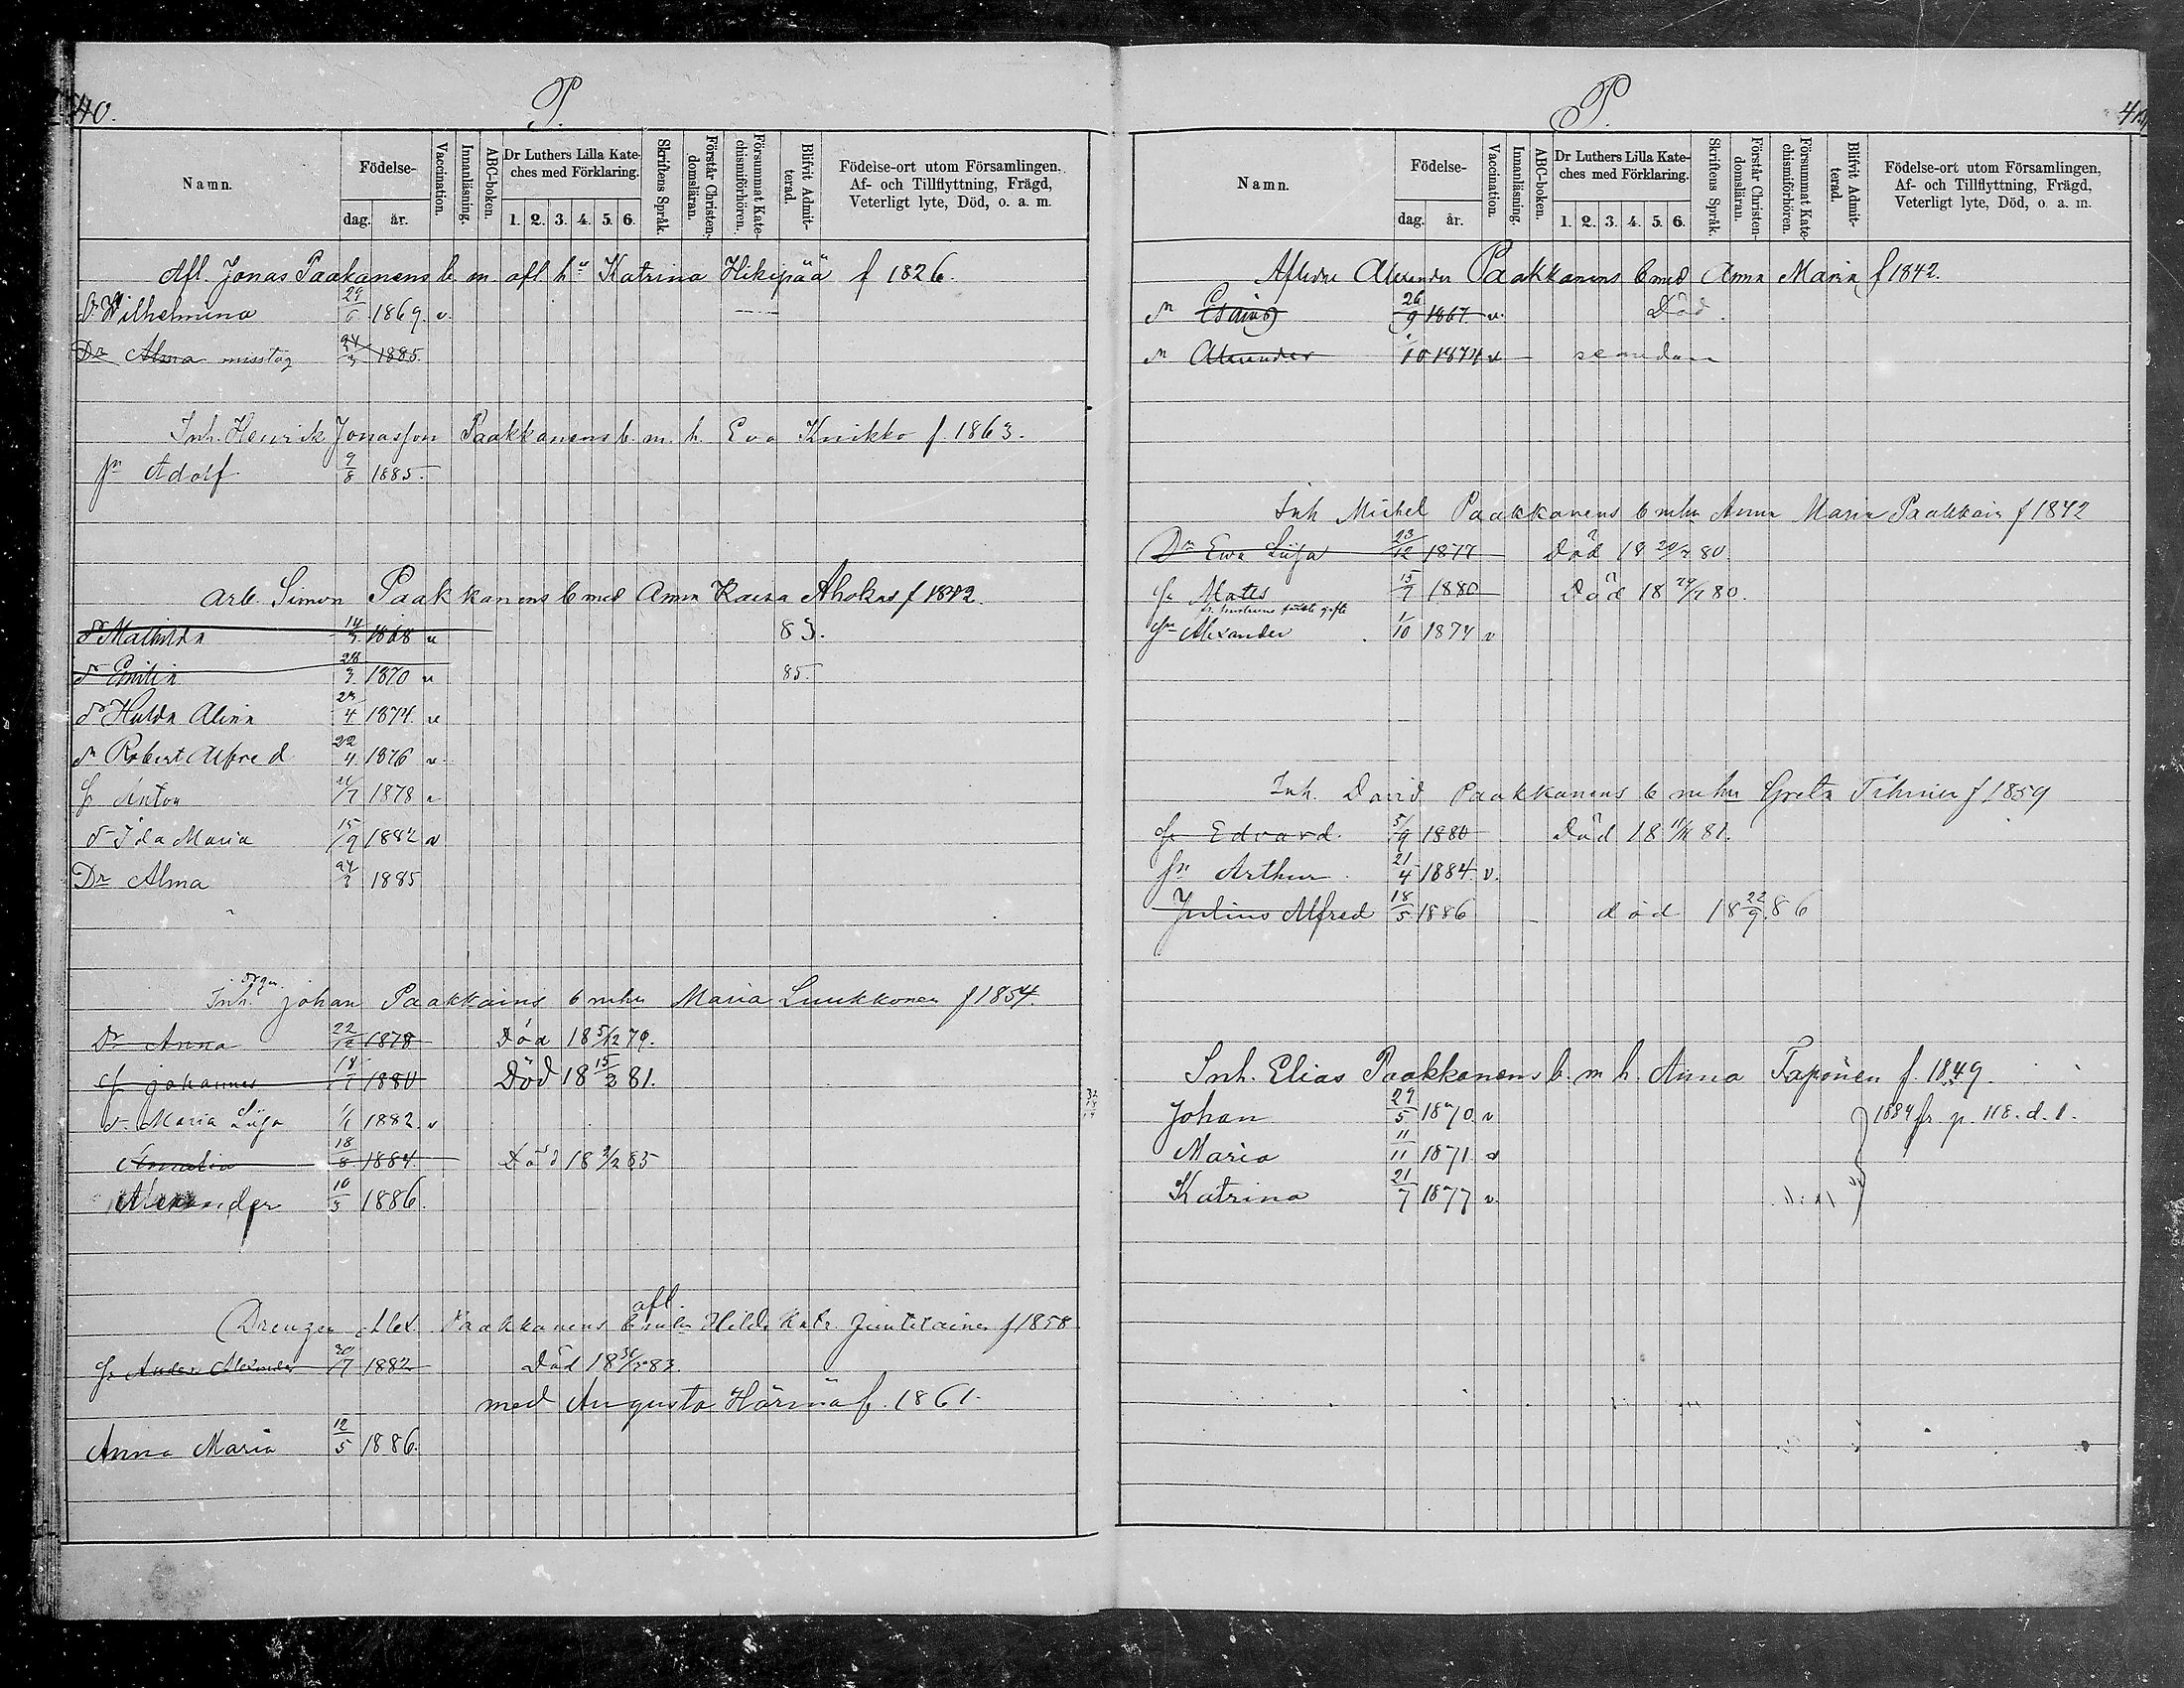 40.
P.
Namn.
Födelse-
dag. år.
Vaccination.
Innanläsning.
ABC-boken.
Dr Luthers Lilla Kate-
ches med Förklaring.
1. 2. 3. 4. 5. 6.
Skriftens Språk.
Förstår Christen-
domsläran.
Försummat Kate-
chismiförhören.
Blifvit Admit-
terad.
Födelse-ort utom Församlingen,
Af- och Tillflyttning, Frägd,
Veterligt lyte, Död, o. a. m.
Afl. Jonas Paakanens b. m. afl. hu Katrina Hikipää f 1826.
dr Wilhelmina 29/6 1869. v.
Dr Alma misstag 24/3 1885.
Inh. Henrik Jonasson Paakkanens b. m. h. Eva Knikko f. 1863.
sn Adolf 9/8 1885.
Arb. Simon Paakkanens b med Anna Kaisa Ahokas f 1842.
dr Mathilda 14/3 1868 v 83.
dr Emilia 28/3 1870 v 85.
dr Hulda Alina 23/4 1874. v
sn Robert Alfred 22/4 1876 v
sn Anton 21/7 1878 v
dr Ida Maria 15/9 1882 v
Dr Alma 24/3 1885
Inh. Johan Paakkains b m hu Maria Luukkonen f 1854.
Dr Anna 22/12 1878 Död 18 5/12 79.
sn Johannes 18/1 1880 Död 18 15/3 81.
dr Maria Liisa 1/1 1882. v
Amalia 18/8 1884. Död 18 2/2 85
Alexander 10/5 1886.
Drengen Alex. Paakkanens b m hu afl. Hilda Katr. f 1858
sn Anders Alexander 30/7 1882 Död 18 83.
med Augusta Härmä f. 1861.
Anna Maria 12/5 1886.
P.
41
Namn.
Födelse-
dag. år.
Vaccination.
Innanläsning.
ABC-boken.
Dr Luthers Lilla Kate-
ches med Förklaring.
1. 2. 3. 4. 5. 6.
Skriftens Språk.
Förstår Christen-
domsläran.
Försummat Kate-
chismiförhören.
Blifvit Admit-
terad.
Födelse-ort utom Församlingen,
Af- och Tillflyttning, Frägd,
Veterligt lyte, Död, o. a. m.
Aflidne Alexander Paakkanens b med Anna Maria f 1842.
sn Esaias 26/9 1867 v. Död.
sn Alexander 1/10 1874 v se nedan
Inh Michel Paakkanens b m hu Anna Maria Paakkain f 1842
Dr Ewa Liisa 23/12 1877 Död 18 20/7 80.
sn Mats 15/7 1880 Död 18 29/7 80.
sn Alexander 1/10 1874 v
Inh. David Paakkanens b m hu Greta Tihinen f 1859
sn Edvard. 5/9 1880 Död 18 11/11 81.
sn Arthur 21/4 1884. v.
Julius Alfred 18/5 1886 död 18 22/9 86
Inh. Elias Paakkanens b. m. h. Anna Taponen f. 1849.
Johan 29/5 1870. v 1884 fr. p. 118. d. 1.
Maria 11/11 1871. v
Katrina 21/7 1877 v